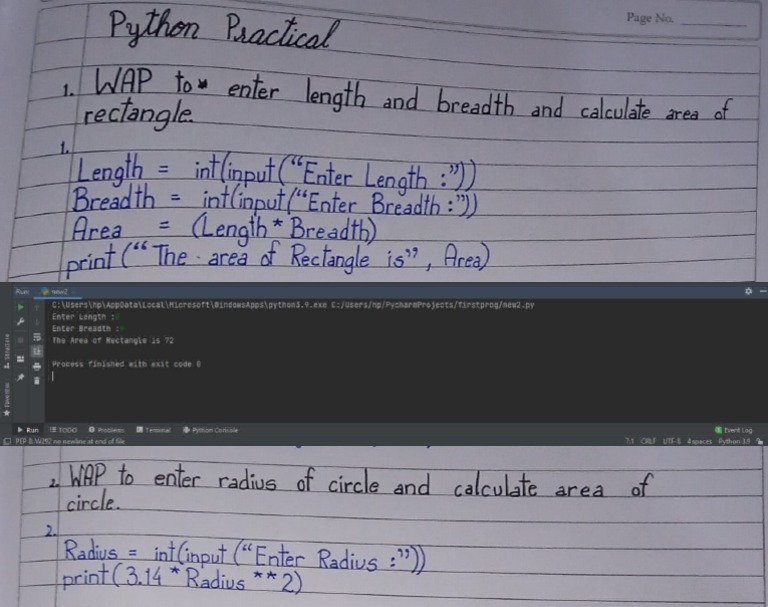 Page No.
Python Practical
1. WAP to enter length and breadth and calculate area of
rectangle.
1.
Length = int(input(“Enter Length :”))
Breadth = int(input(“Enter Breadth :”))
Area = (Length * Breadth)
print(“The area of Rectangle is”, Area)
Run: new2
C:\Users\hp\AppData\Local\Microsoft\WindowsApps\python3.9.exe C:/Users/hp/PycharmProjects/firstprog/new2.py
Enter Length :
Enter Breadth :
The Area of Rectangle is 72
Process finished with exit code 0
Structure
Favorites
Run TODO Problems Terminal Python Console Event Log
PEP 8: W292 no newline at end of file 7:1 CRLF UTF-8 4 spaces Python 3.9
2. WAP to enter radius of circle and calculate area of
circle.
2.
Radius = int(input (“Enter Radius :”))
print(3.14 * Radius ** 2)